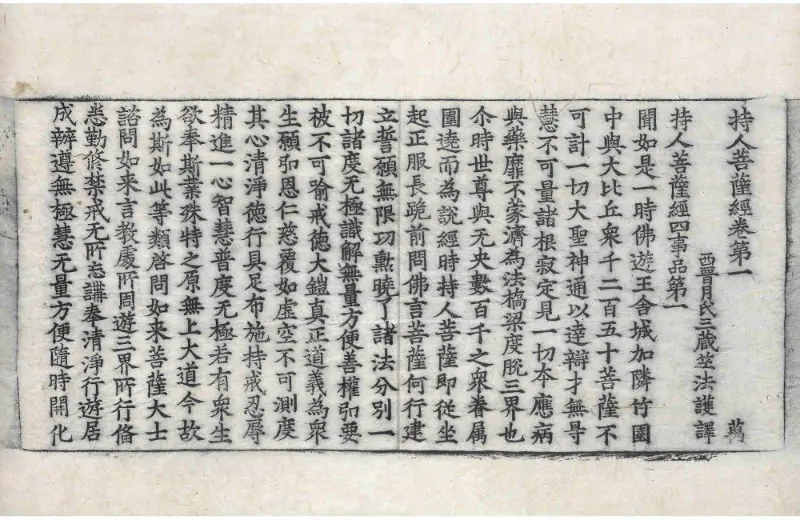 持人菩薩經卷第一 萬
西晉月氏三藏竺法護譯
持人菩薩經四事品第一
聞如是一時佛遊王舍城加隣竹園
中與大比丘衆千二百五十菩薩不
可計一切大聖神通以達辯才無㝵
慧不可量諸根寂定見一切本應病
與藥靡不蒙濟為法橋梁度脫三界也
尒時世尊與无央數百千之衆眷属
圍遶而為說經時持人菩薩即從坐
起正服長跪前問佛言菩薩何行建
立誓願無限功勳曉了諸法分別一
切諸度无極識解無量方便善權弘要
被不可踰戒德大鎧真正道義為衆
生願弘恩仁慈覆如虛空不可測度
其心清淨德行具足布施持戒忍辱
精進一心智慧普度无極若有衆生
欲奉斯業殊特之原無上大道今故
為斯如此等類啓問如来菩薩大士
諮問如来言教處所周遊三界所行俻
悉勤修禁戒无所忘講奉清淨行遊居
成辦遵無極慧无量方便隨時開化